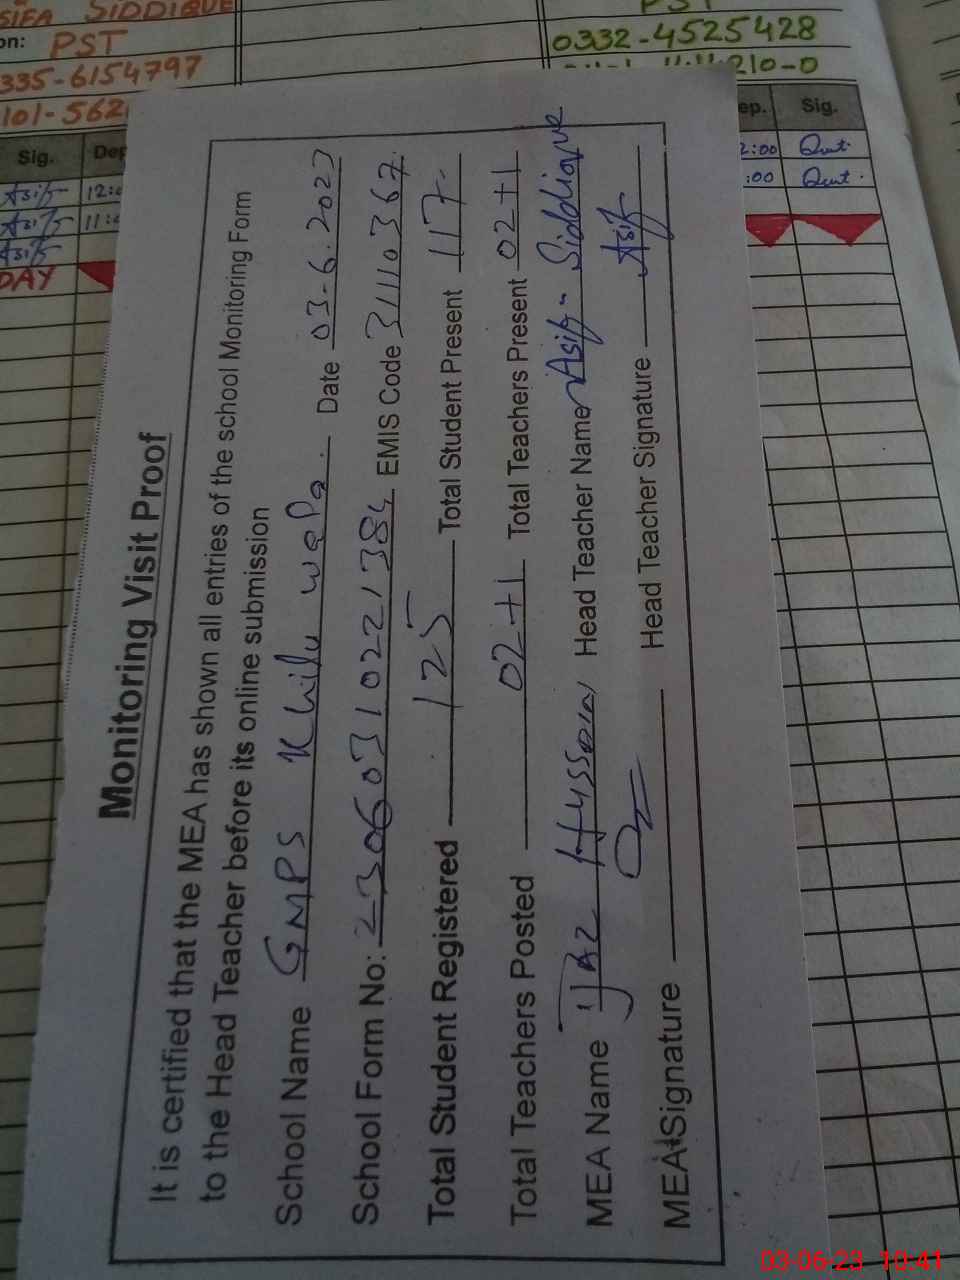 SIFA SIDDIQUE
on: PST
335-6154797
101-562
PST
0332-4525428
210-0
Sig. Dep
ep. Sig.
Asif 12:0
Asif 11:0
Asif
2:00
:00
DAY
Monitoring Visit Proof
It is certified that the MEA has shown all entries of the school Monitoring Form
to the Head Teacher before its online submission
School Name GMPS Khilu wala. Date 03-6.2023
School Form No: 23060310221384 EMIS Code 31110367
Total Student Registered 125 Total Student Present 117
Total Teachers Posted 02+1 Total Teachers Present 02+1
MEA Name Ijaz Hussain Head Teacher Name Asifa Siddique
MEA Signature Head Teacher Signature Asif
03-06-23 10:41